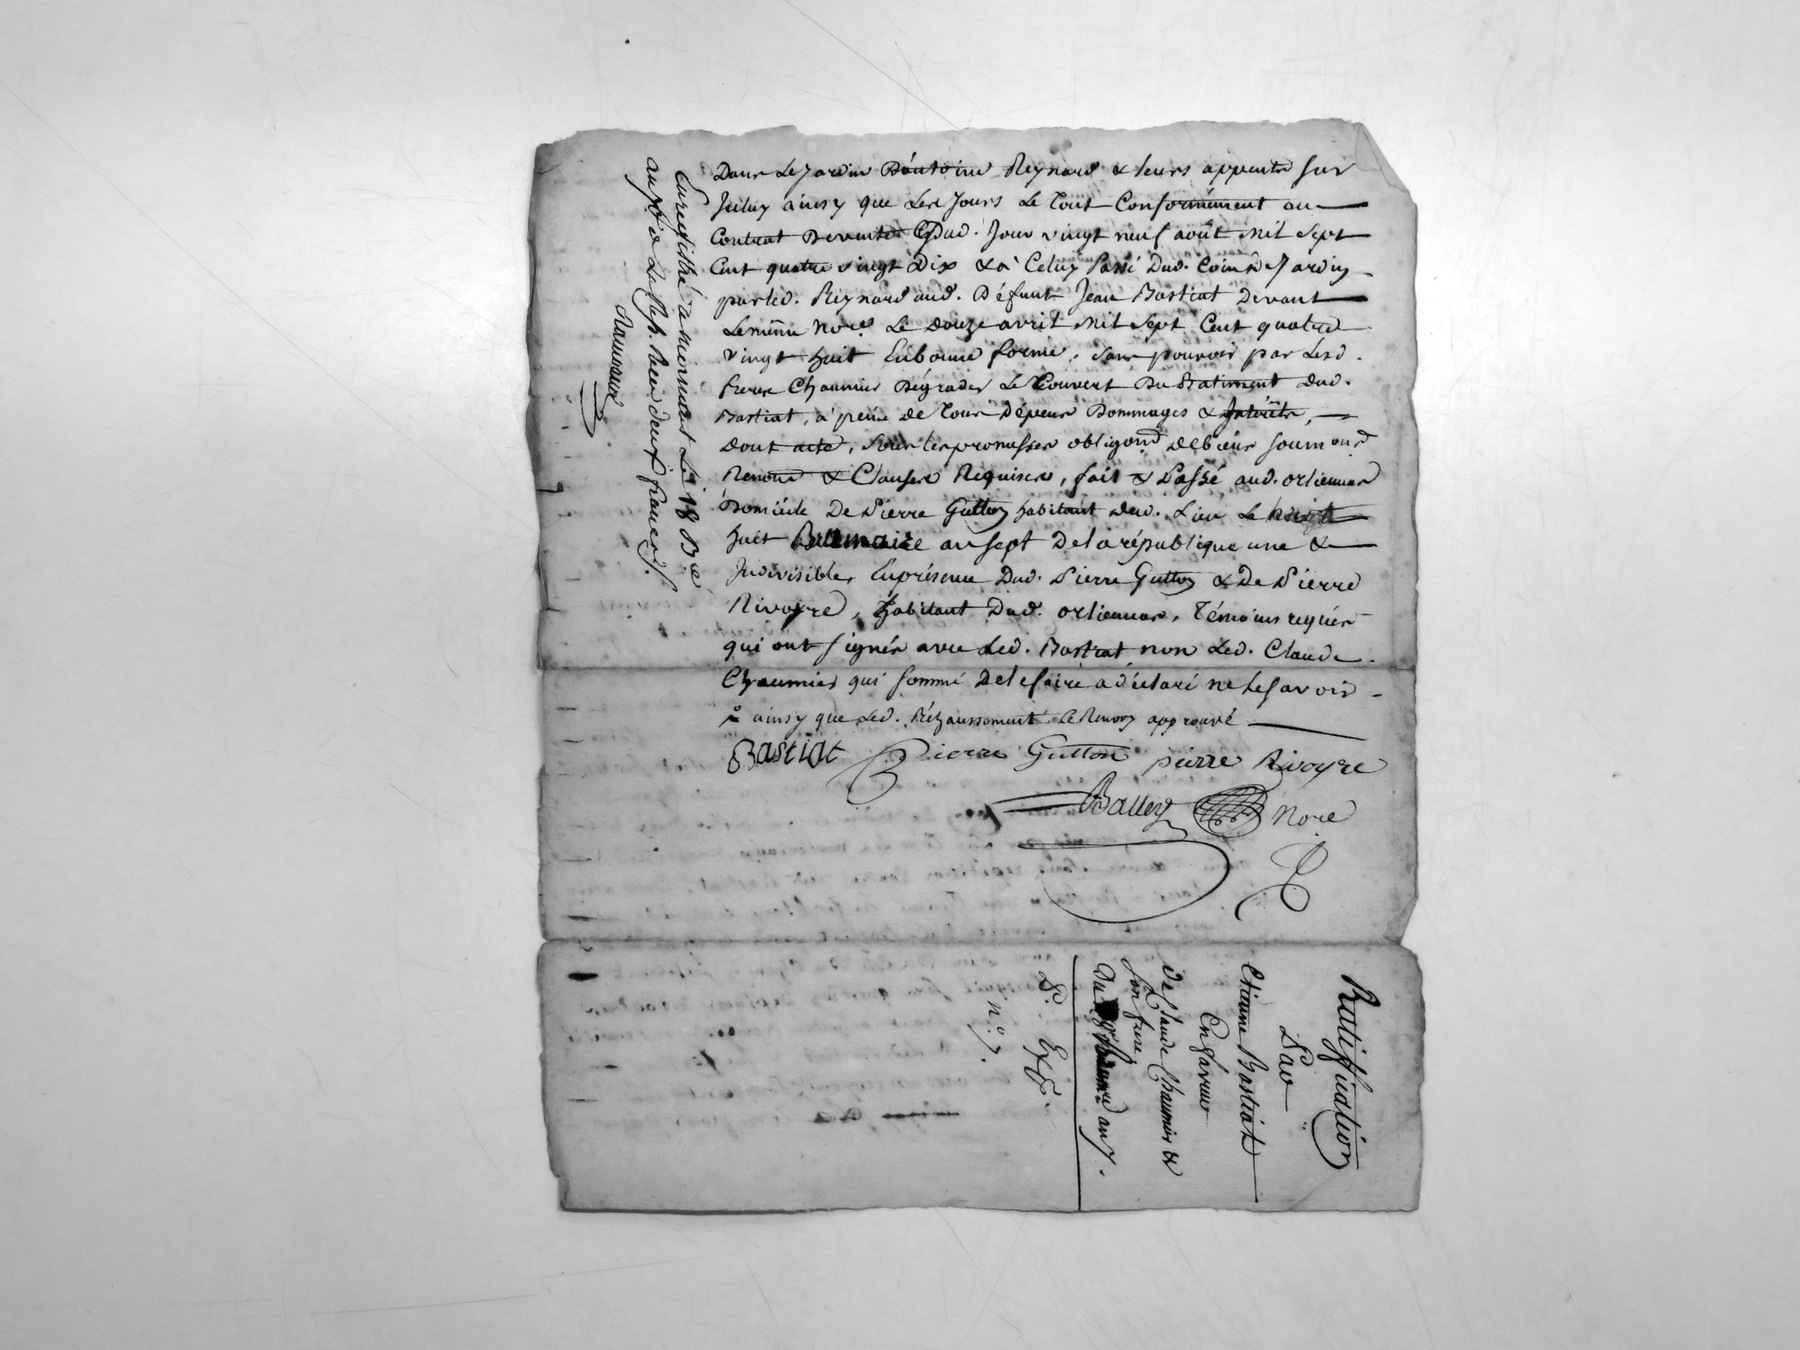 Dans Le Jardin D'antoine Reynard & leurs appents sur
Jceluy ainsy que Les Jours Le tout Conformément au
Contrat De vente dud. Jour vingt neuf août mil sept
Cent quatre vingt Dix & à Celuy Passé Dud. Coin de Jardin
par led. Reynard aud. Défunt Jean Bastiat Devant
Le même Nore. Le Douze avril mil sept Cent quatre
vingt huit En bonne forme, sans pouvoir par Lesd.
freres Chaumier Dégrader Le Couvert Du Batiment dud.
Bastiat, à peine de tous Dépens Dommages & Jntérêts,
Dont acte, sous les promesses obligons de biens soumons
Renons & Clauses Requises, fait & Passé aud. orliennas
Domicile De Pierre Gutton habitant dud. Lieu Le
huit Brumaire an sept De la république une &
Jndivisible, En présence Dud. Pierre Gutton & De Pierre
Rivoyre, habitant Dud. orliennas, Témoins requis
qui ont signés avec Led. Bastiat non Led. Claude
Chaumier qui sommé De le faire a déclaré ne le savoir
ainsy que Led. Réhaussement Le Renvoy approuvé
Bastiat Pierre Gutton pierre Rivoyre
Balley Nore
Enregistré à mornant Le 18 Bre
an 7 Reçu deux francs.
Ratiffication
Par
Etienne Bastiat
En faveur
de Claude Chaumier &
Son frere
Du an 7.
P. Exp.
n.º 7.